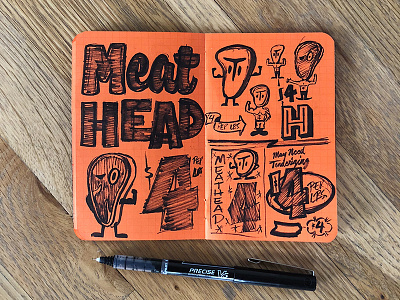 Meat
HEAD
$4
PER
LBS
$4
PER LBS.
$4
H
MEATHEAD
4
May Need
Tenderizing
$4
PER
LBS
$4
PRECISE V5